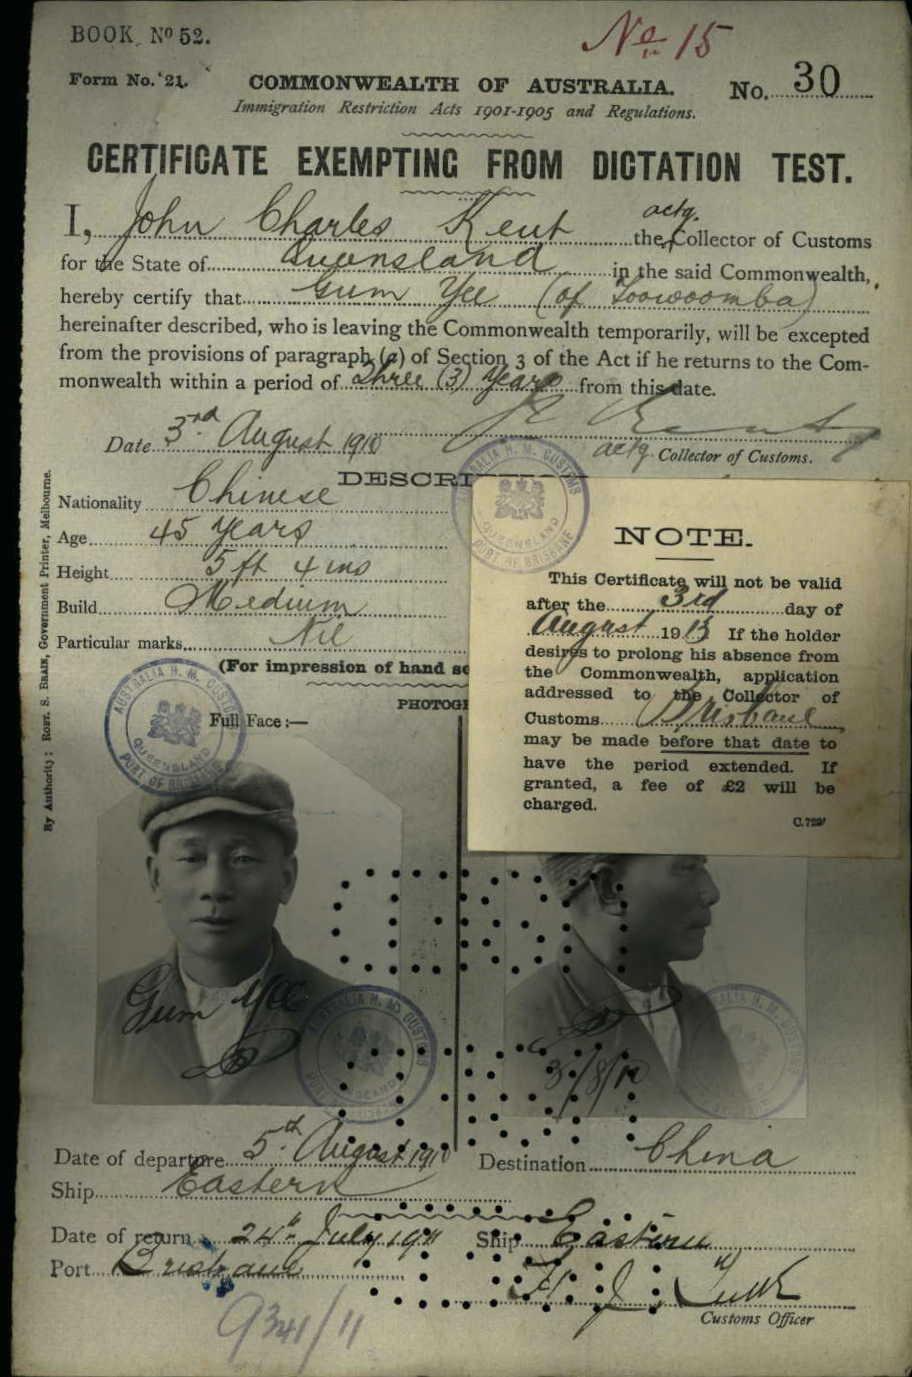 BOOK Nº 52.
No 15
Form No. 21.
COMMONWEALTH OF AUSTRALIA.
No. 30
Immigration Restriction Acts 1901-1905 and Regulations.
CERTIFICATE EXEMPTING FROM DICTATION TEST.
I, John Charles Kent the actg. Collector of Customs
for the State of Queensland in the said Commonwealth,
hereby certify that Gum Yee (of Toowoomba)
hereinafter described, who is leaving the Commonwealth temporarily, will be excepted
from the provisions of paragraph (a) of Section 3 of the Act if he returns to the Com-
monwealth within a period of Three (3) Years from this date.
Date 3rd August 1910
actg. Collector of Customs.
DESCRI
Nationality Chinese
Age 45 Years
Height 5 ft 4 ins
Build Medium
Particular marks Nil
(For impression of hand se
PHOTOG
Full Face:—
AUSTRALIA H. M. CUSTOMS
QUEENSLAND
PORT OF BRISBANE
NOTE.
This Certificate will not be valid
after the 3rd day of
August 1913 If the holder
desires to prolong his absence from
the Commonwealth, application
addressed to the Collector of
Customs Brisbane,
may be made before that date to
have the period extended. If
granted, a fee of £2 will be
charged.
C.729
By Authority: ROBT. S. BRAIN, Government Printer, Melbourne.
Gum Yee
3/8/10
Date of departure 5th August 1910 Destination China
Ship Eastern
Date of return 24th July 1911 Ship Eastern
Port Brisbane
Customs Officer
9341/11